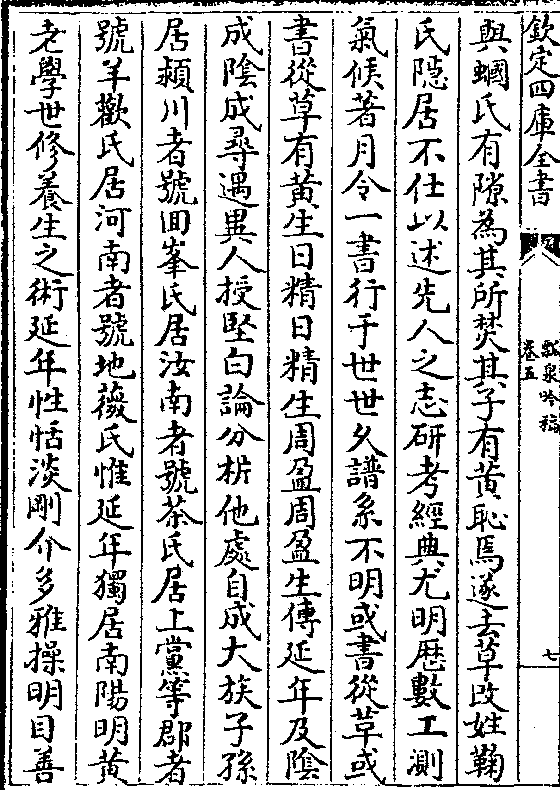 欽定四庫全書
瓢泉吟稿
卷五
七
與蟈氏有隙為其所焚其子有黄恥焉遂去草改姓鞠
氏隠居不仕以述先人之志研考經典尤明厯數工測
氣候著月令一書行于世世久譜系不明或書從草或
書從草有黄生日精日精生周盈周盈生傳延年及陰
成陰成尋遇異人授堅白論分析他處自成大族子孫
居潁川者號回峯氏居汝南者號茶氏居上黨等郡者
號羊歡氏居河南者號地薇氏惟延年獨居南陽明黄
老學世修養生之術延年性恬淡剛介多雅操明目善